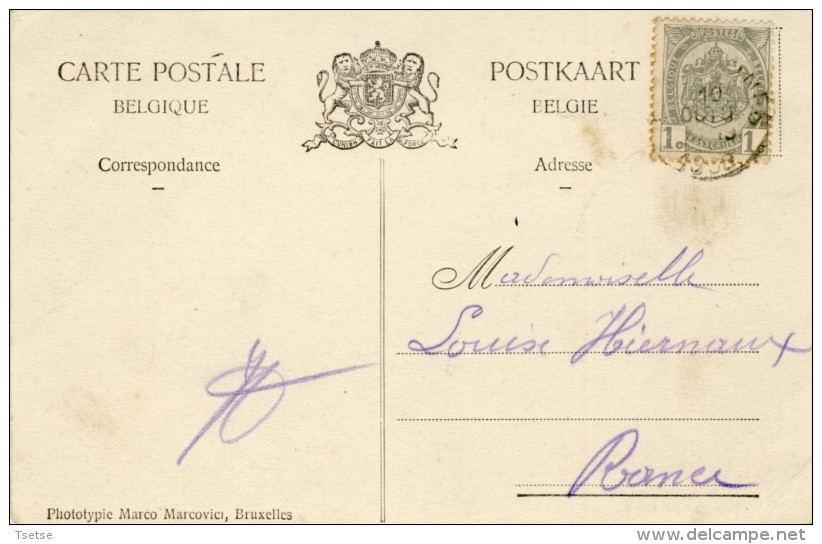 CARTE POSTALE
BELGIQUE
Correspondance
L'UNION FAIT LA FORCE
POSTKAART
BELGIE
Adresse
POSTES
1 1
10
1908
Mademoiselle
Louise Hiernaux
Rance
Phototypie Marco Marcovici, Bruxelles
Tsetse
delcampe.net